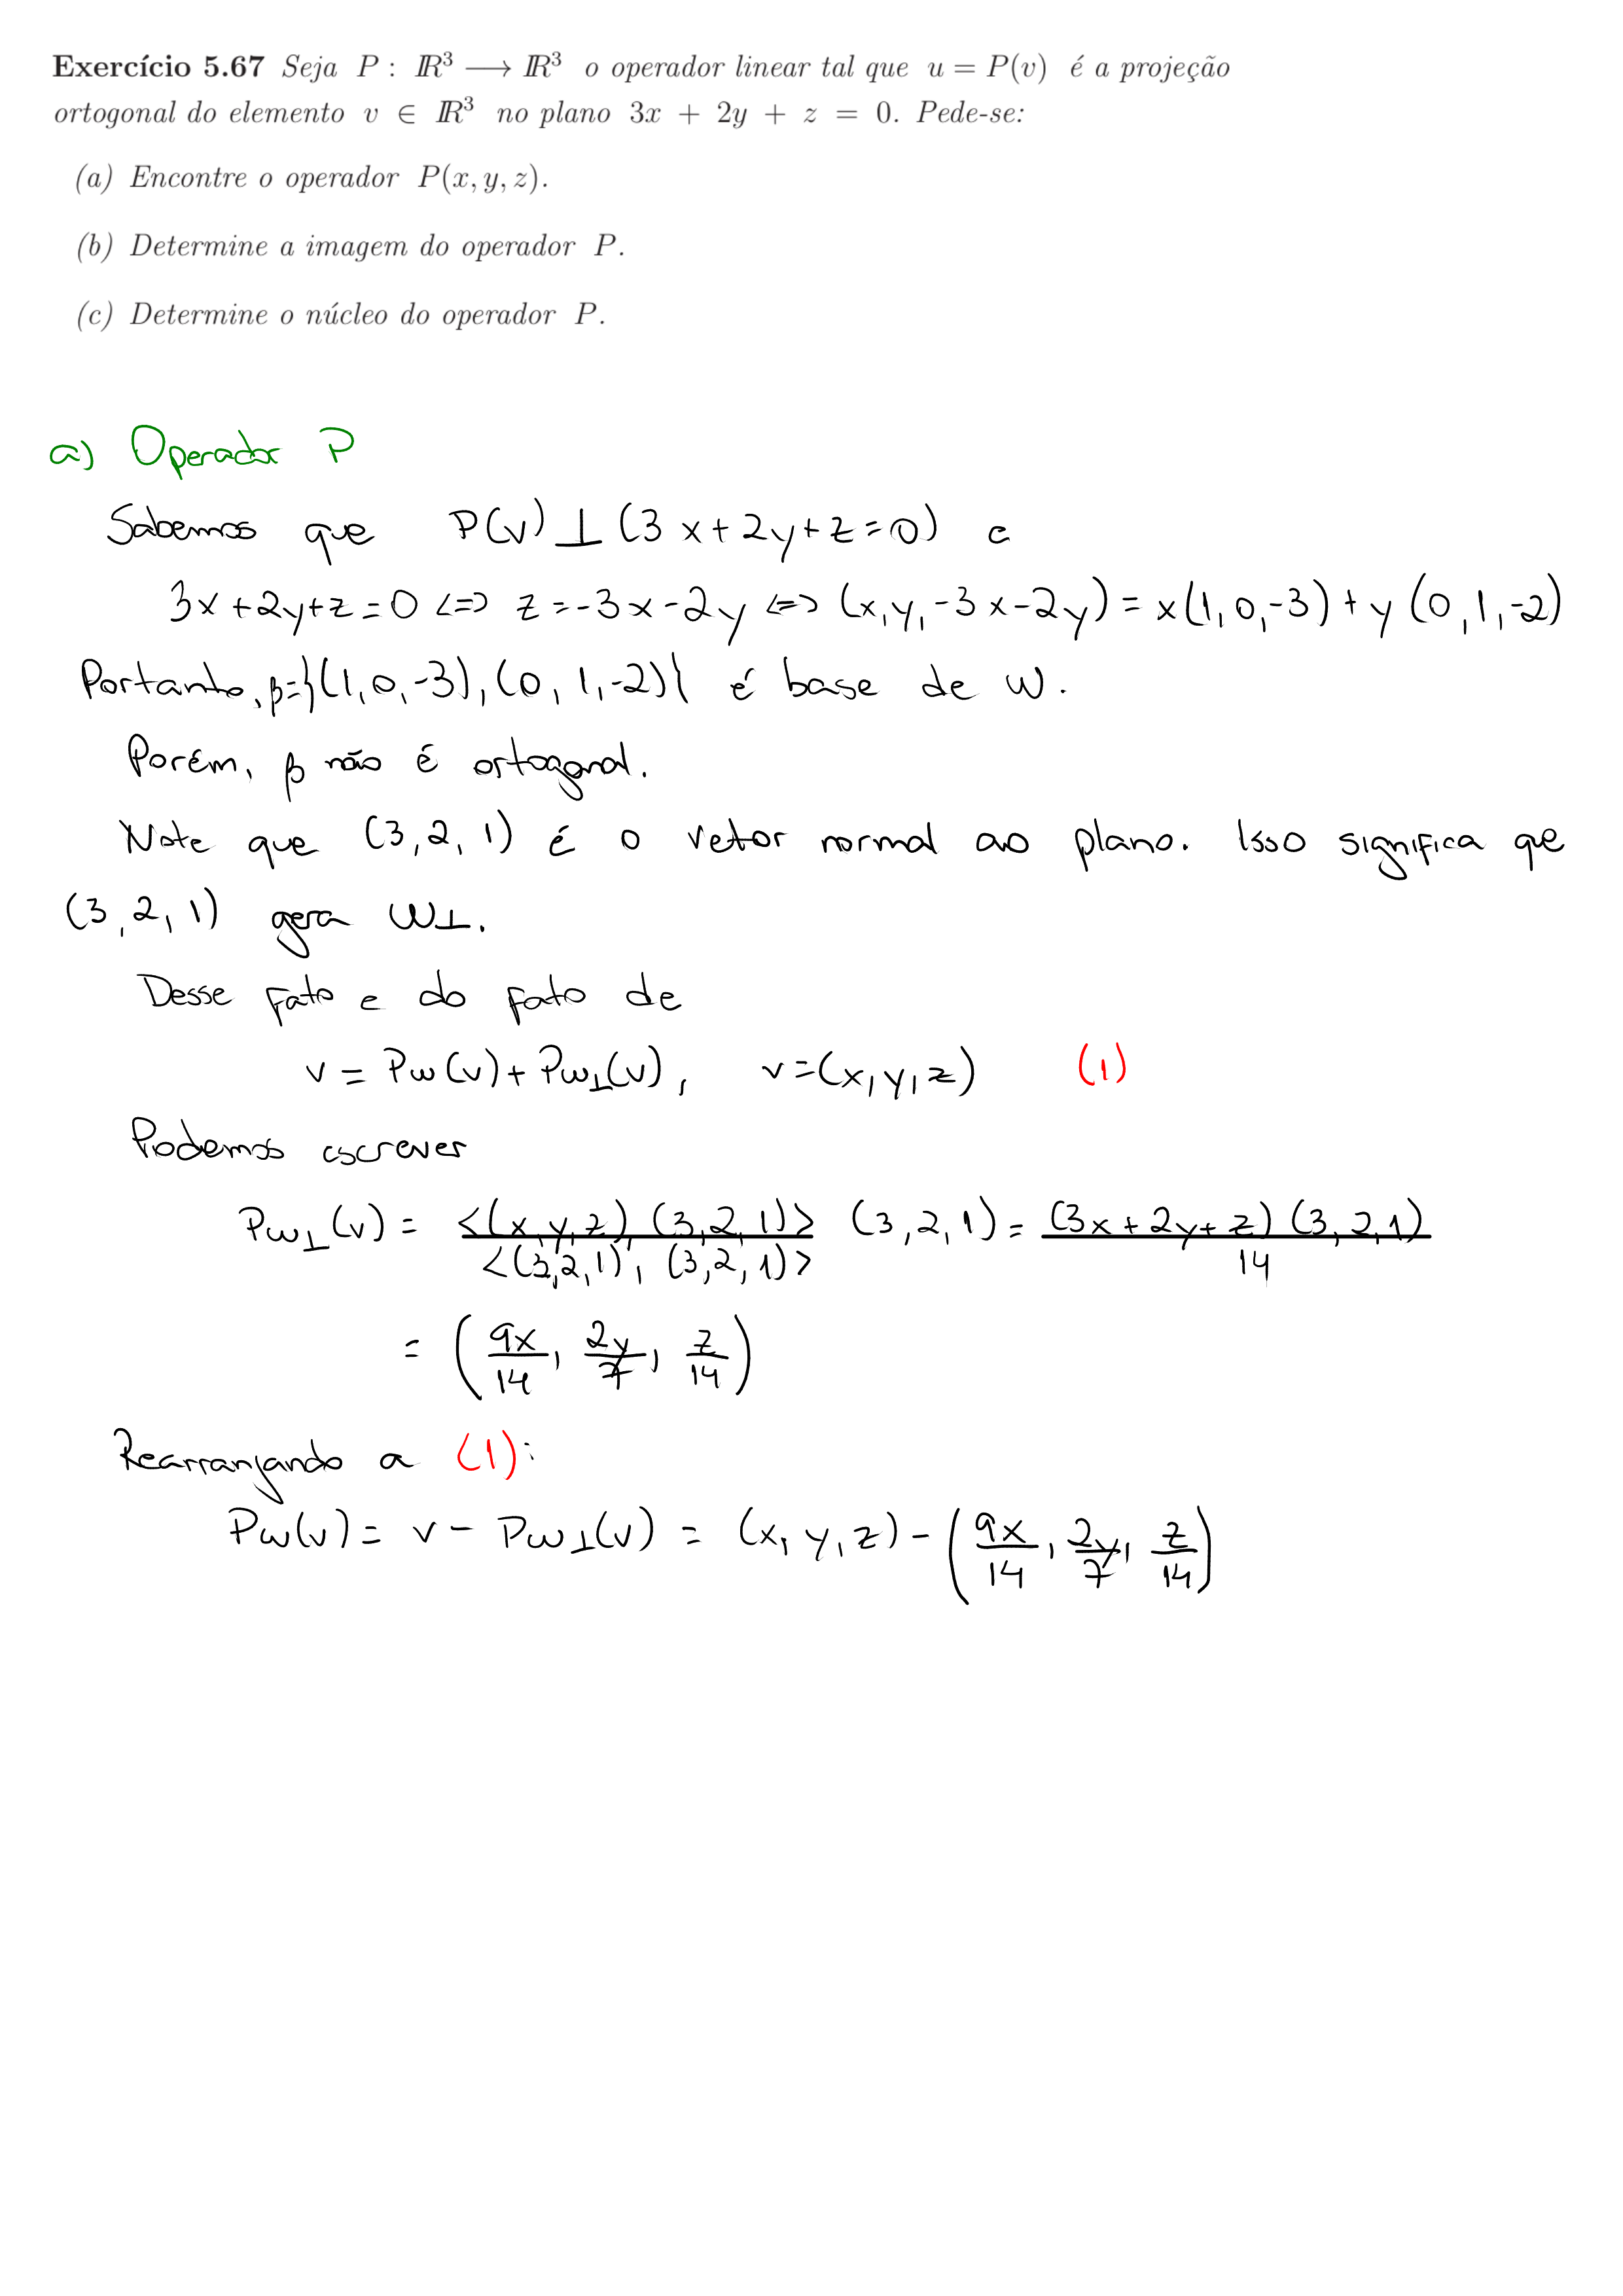 Exercício 5.67 Seja P : ℝ³ ⟶ ℝ³ o operador linear tal que u = P(v) é a projeção
ortogonal do elemento v ∈ ℝ³ no plano 3x + 2y + z = 0. Pede-se:
(a) Encontre o operador P(x, y, z).
(b) Determine a imagem do operador P.
(c) Determine o núcleo do operador P.
a) Operador P
Sabemos que P(v) ⊥ (3x+2y+z=0) e
3x+2y+z=0 <=> z=-3x-2y <=> (x,y,-3x-2y) = x(1,0,-3) + y(0,1,-2)
Portanto, β={(1,0,-3),(0,1,-2)} é base de W.
Porém, β não é ortogonal.
Note que (3,2,1) é o vetor normal ao plano. Isso significa que
(3,2,1) gera W⊥.
Desse fato e do fato de
v = Pw(v) + Pw⊥(v), v=(x,y,z) (1)
Podemos escrever
Pw⊥(v) = <(x,y,z),(3,2,1)>/<(3,2,1),(3,2,1)> (3,2,1) = (3x+2y+z)(3,2,1)/14
= (9x/14, 2y/7, z/14)
Rearranjando a (1):
Pw(v) = v - Pw⊥(v) = (x,y,z) - (9x/14, 2y/7, z/14)